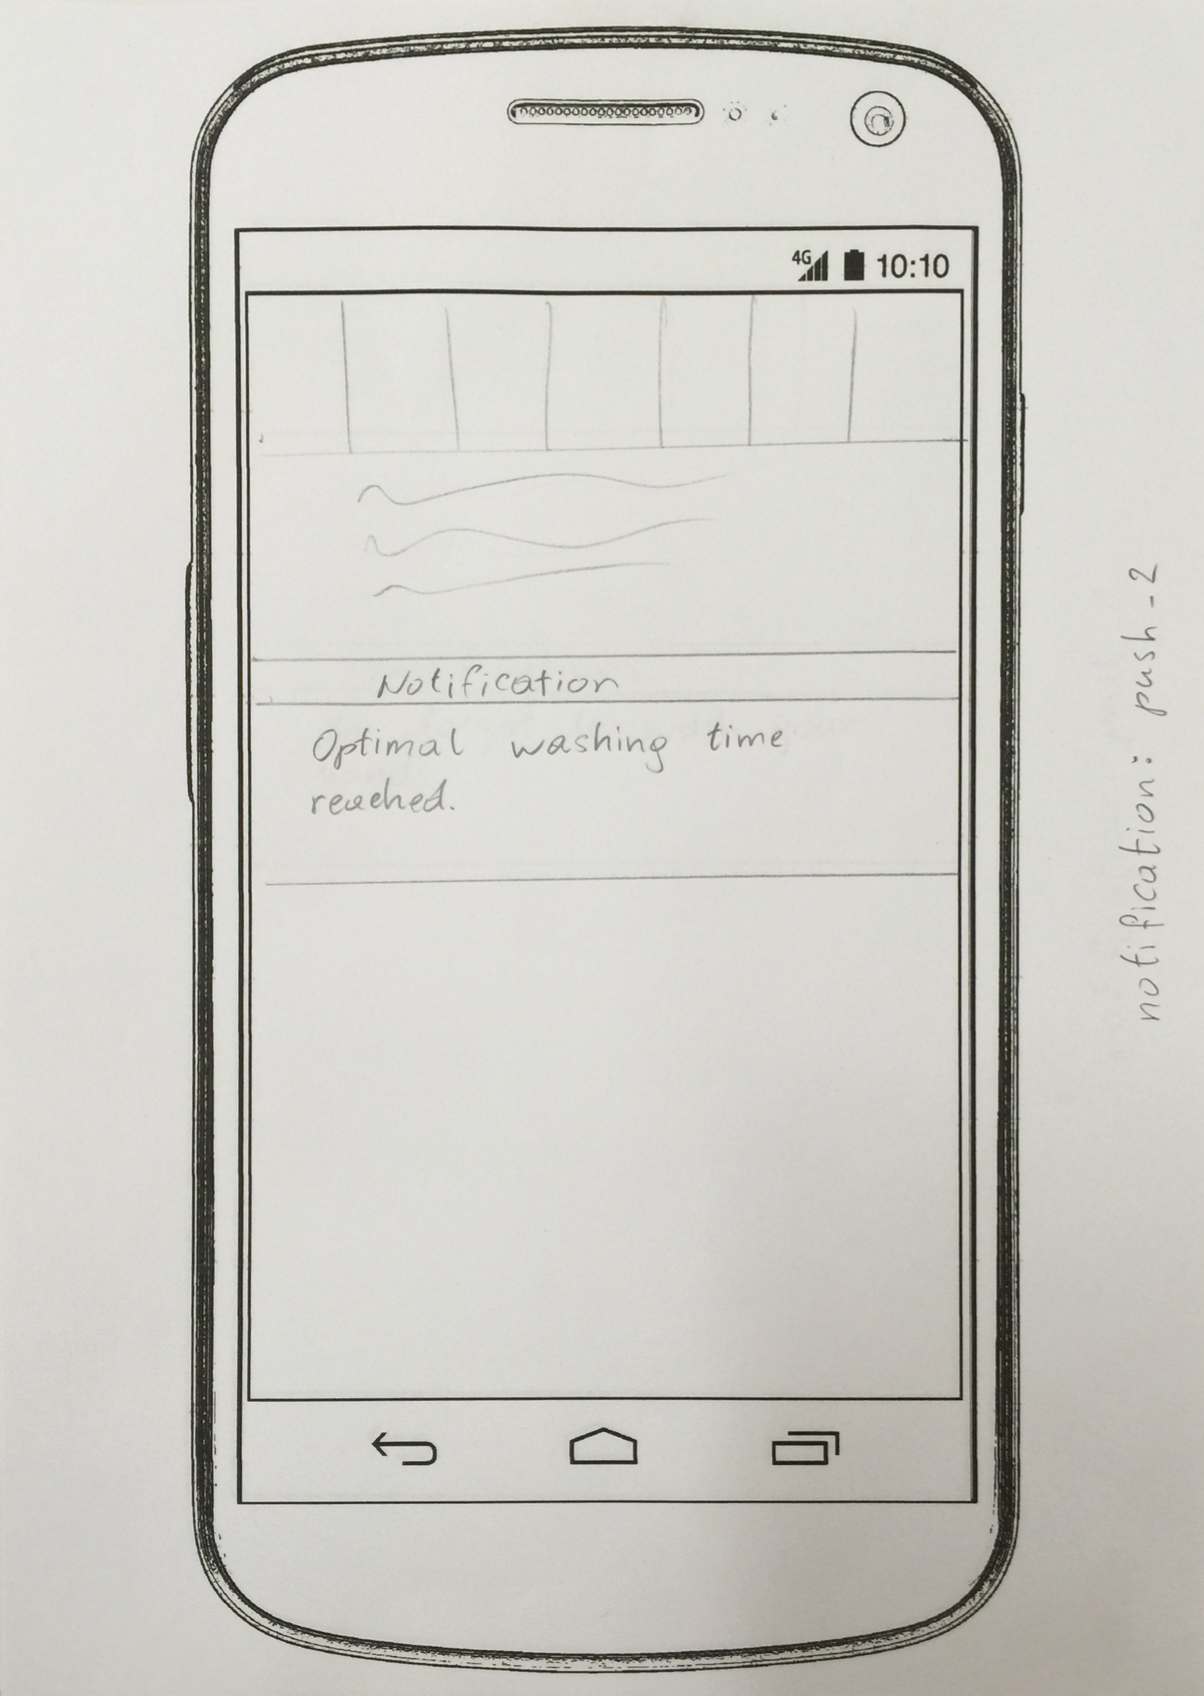 4G 10:10
Notification
Optimal washing time
reached.
notification: push-2